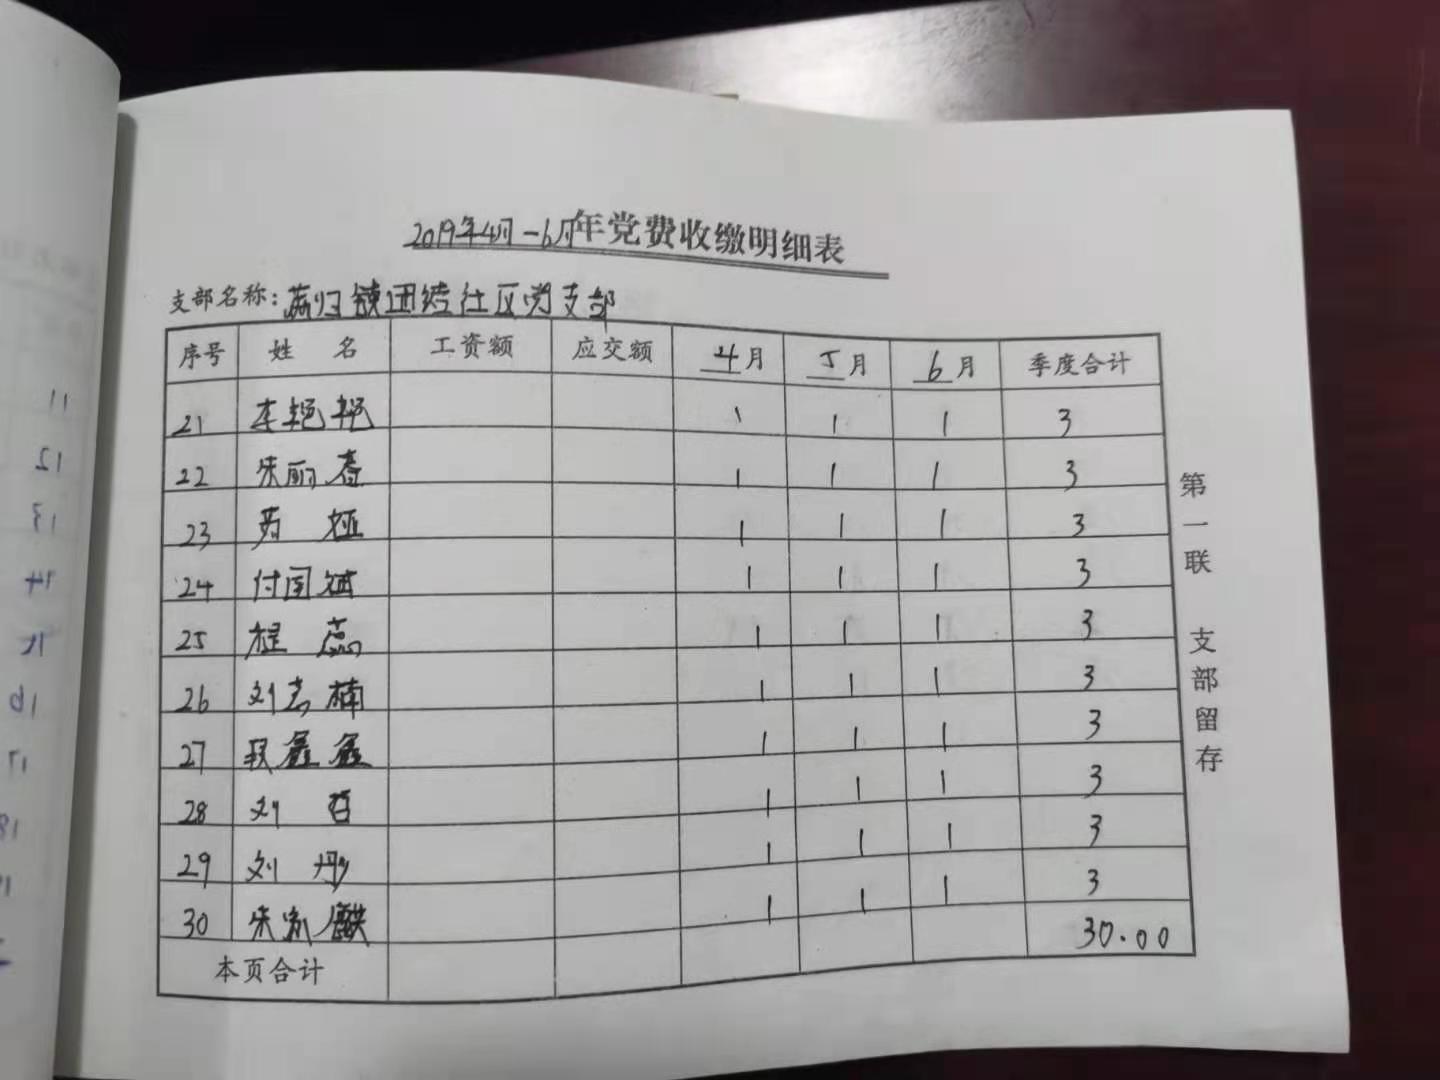 2019年4月-6月年党费收缴明细表
支部名称: 镇团结社区党支部
序号 姓名 工资额 应交额 4月 5月 6月 季度合计
21 李艳艳 1 1 1 3
22 朱丽春 1 1 1 3
23 1 1 1 3
24 付国斌 1 1 1 3
25 程蕊 1 1 1 3
26 刘志楠 1 1 1 3
27 鑫鑫 1 1 1 3
28 刘哲 1 1 1 3
29 刘丹 1 1 1 3
30 朱家麒 1 1 1 3
本页合计 30.00
第一联 支部留存
11
12
13
14
15
16
17
18
19